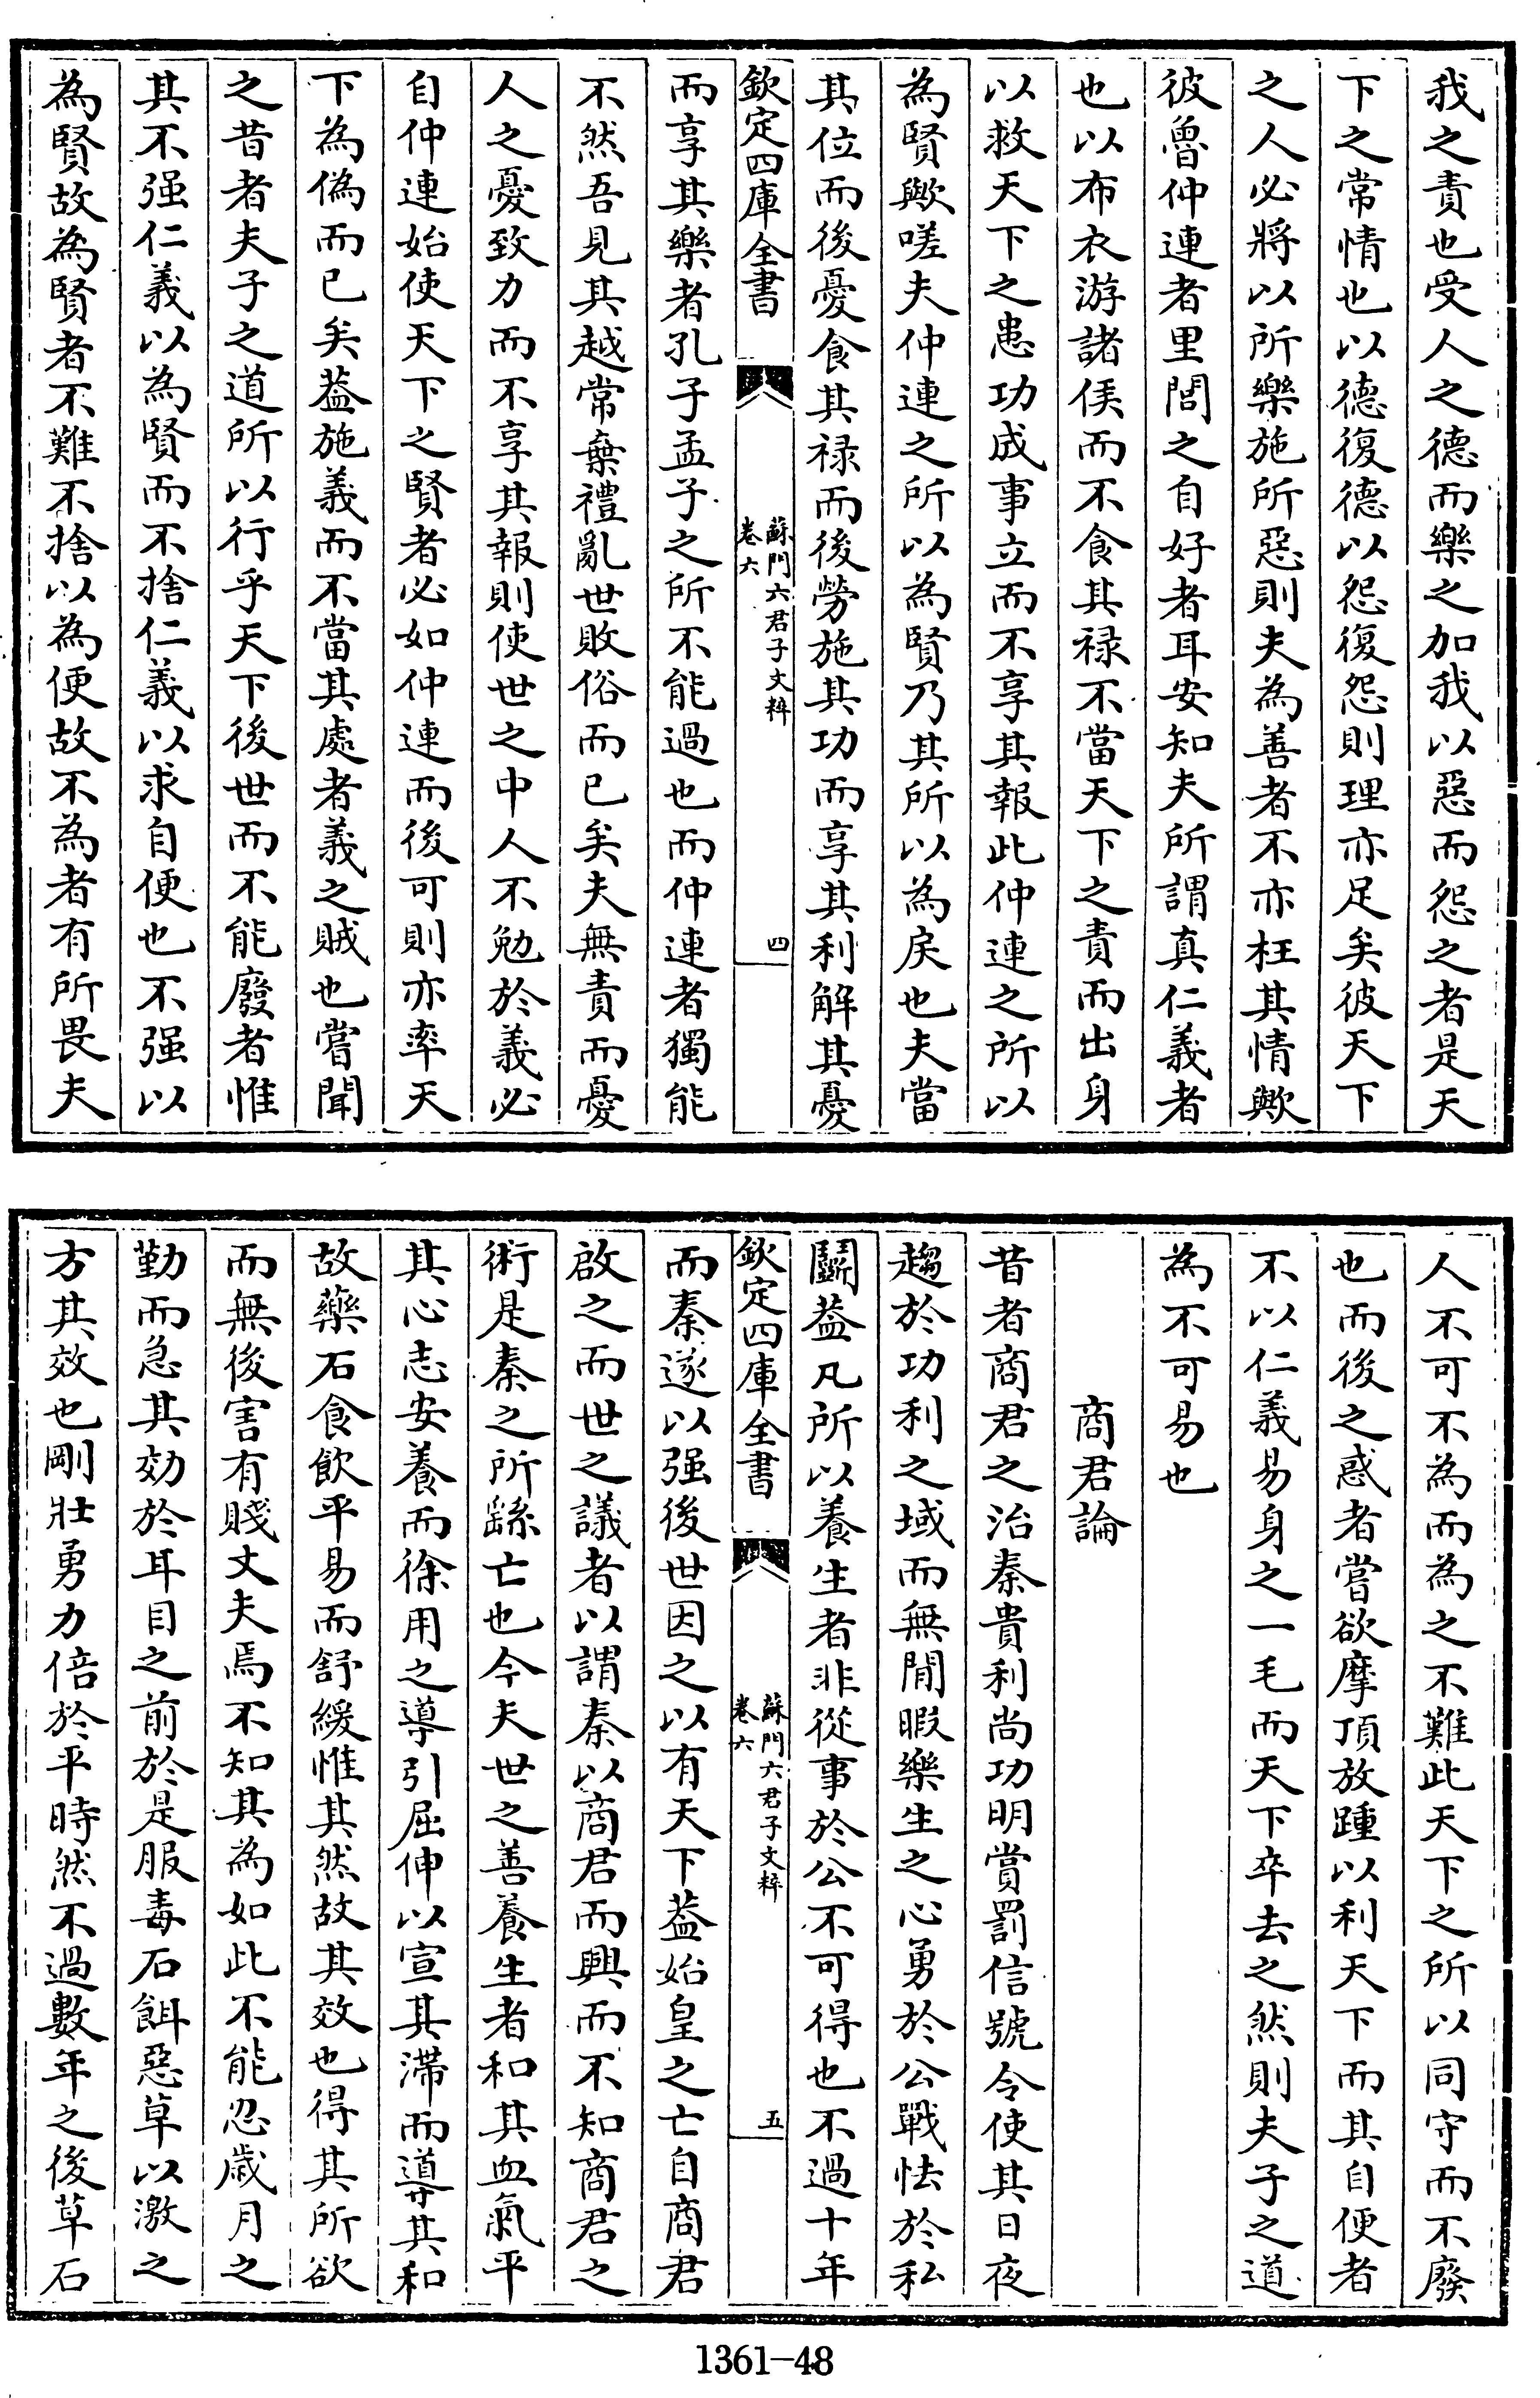 我之責也受人之德而樂之加我以惡而怨之者是天
下之常情也以德復德以怨復怨則理亦足矣彼天下
之人必將以所樂施所惡則夫為善者不亦枉其情歟
彼魯仲連者里閭之自好者耳安知夫所謂真仁義者
也以布衣游諸侯而不食其禄不當天下之責而出身
以救天下之患功成事立而不享其報此仲連之所以
為賢歟嗟夫仲連之所以為賢乃其所以為戾也夫當
其位而後憂食其禄而後勞施其功而享其利解其憂
欽定四庫全書
蘇門六君子文粹
卷六
四
而享其樂者孔子孟子之所不能過也而仲連者獨能
不然吾見其越常棄禮亂世敗俗而已矣夫無責而憂
人之憂致力而不享其報則使世之中人不勉於義必
自仲連始使天下之賢者必如仲連而後可則亦率天
下為偽而已矣葢施義而不當其處者義之賊也嘗聞
之昔者夫子之道所以行乎天下後世而不能廢者惟
其不强仁義以為賢而不捨仁義以求自便也不强以
為賢故為賢者不難不捨以為便故不為者有所畏夫
人不可不為而為之不難此天下之所以同守而不廢
也而後之惑者嘗欲摩頂放踵以利天下而其自便者
不以仁義易身之一毛而天下卒去之然則夫子之道
為不可易也
商君論
昔者商君之治秦貴利尚功明賞罰信號令使其日夜
趨於功利之域而無閒暇樂生之心勇於公戰怯於私
鬭葢凡所以養生者非從事於公不可得也不過十年
欽定四庫全書
蘇門六君子文粹
卷六
五
而秦遂以强後世因之以有天下葢始皇之亡自商君
啟之而世之議者以謂秦以商君而興而不知商君之
術是秦之所繇亡也今夫世之善養生者和其血氣平
其心志安養而徐用之導引屈伸以宣其滯而導其和
故藥石食飲平易而舒緩惟其然故其效也得其所欲
而無後害有賤丈夫焉不知其為如此不能忍歲月之
勤而急其効於耳目之前於是服毒石餌惡草以激之
方其效也剛壯勇力倍於平時然不過數年之後草石
1361-48